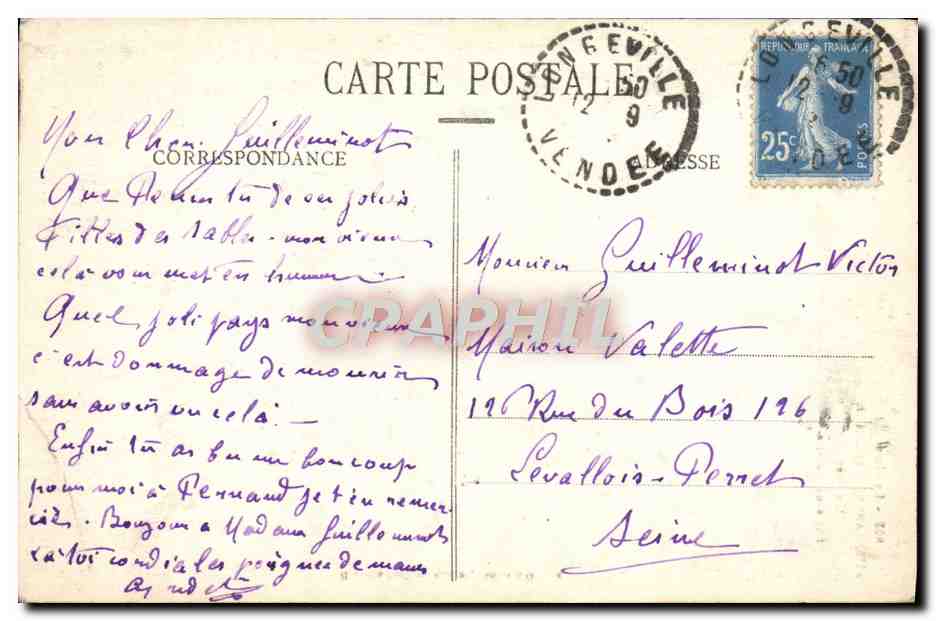 CARTE POSTALE
LONGEVILLE
50
12 9
VENDEE
REPUBLIQUE FRANÇAISE
25c
POSTES
CORRESPONDANCE
ADRESSE
Mon Cher Guilleminot
Que Penses tu de ces jolies
filles des sables. mon vieux
cela vous met en humeur
Quel joli pays mon vieux
c'est dommage de mourir
sans avoir vu cela. —
Enfin tu as bu un bon coup
pour moi à Fernand je t'en remer-
cies. Bonjour a Madame Guilleminot
& à toi cordiales poignées de mains
Monsieur Guilleminot Victor
Maison Valette
126 Rue du Bois 126
Levallois-Perret
Seine
CPAPHIL